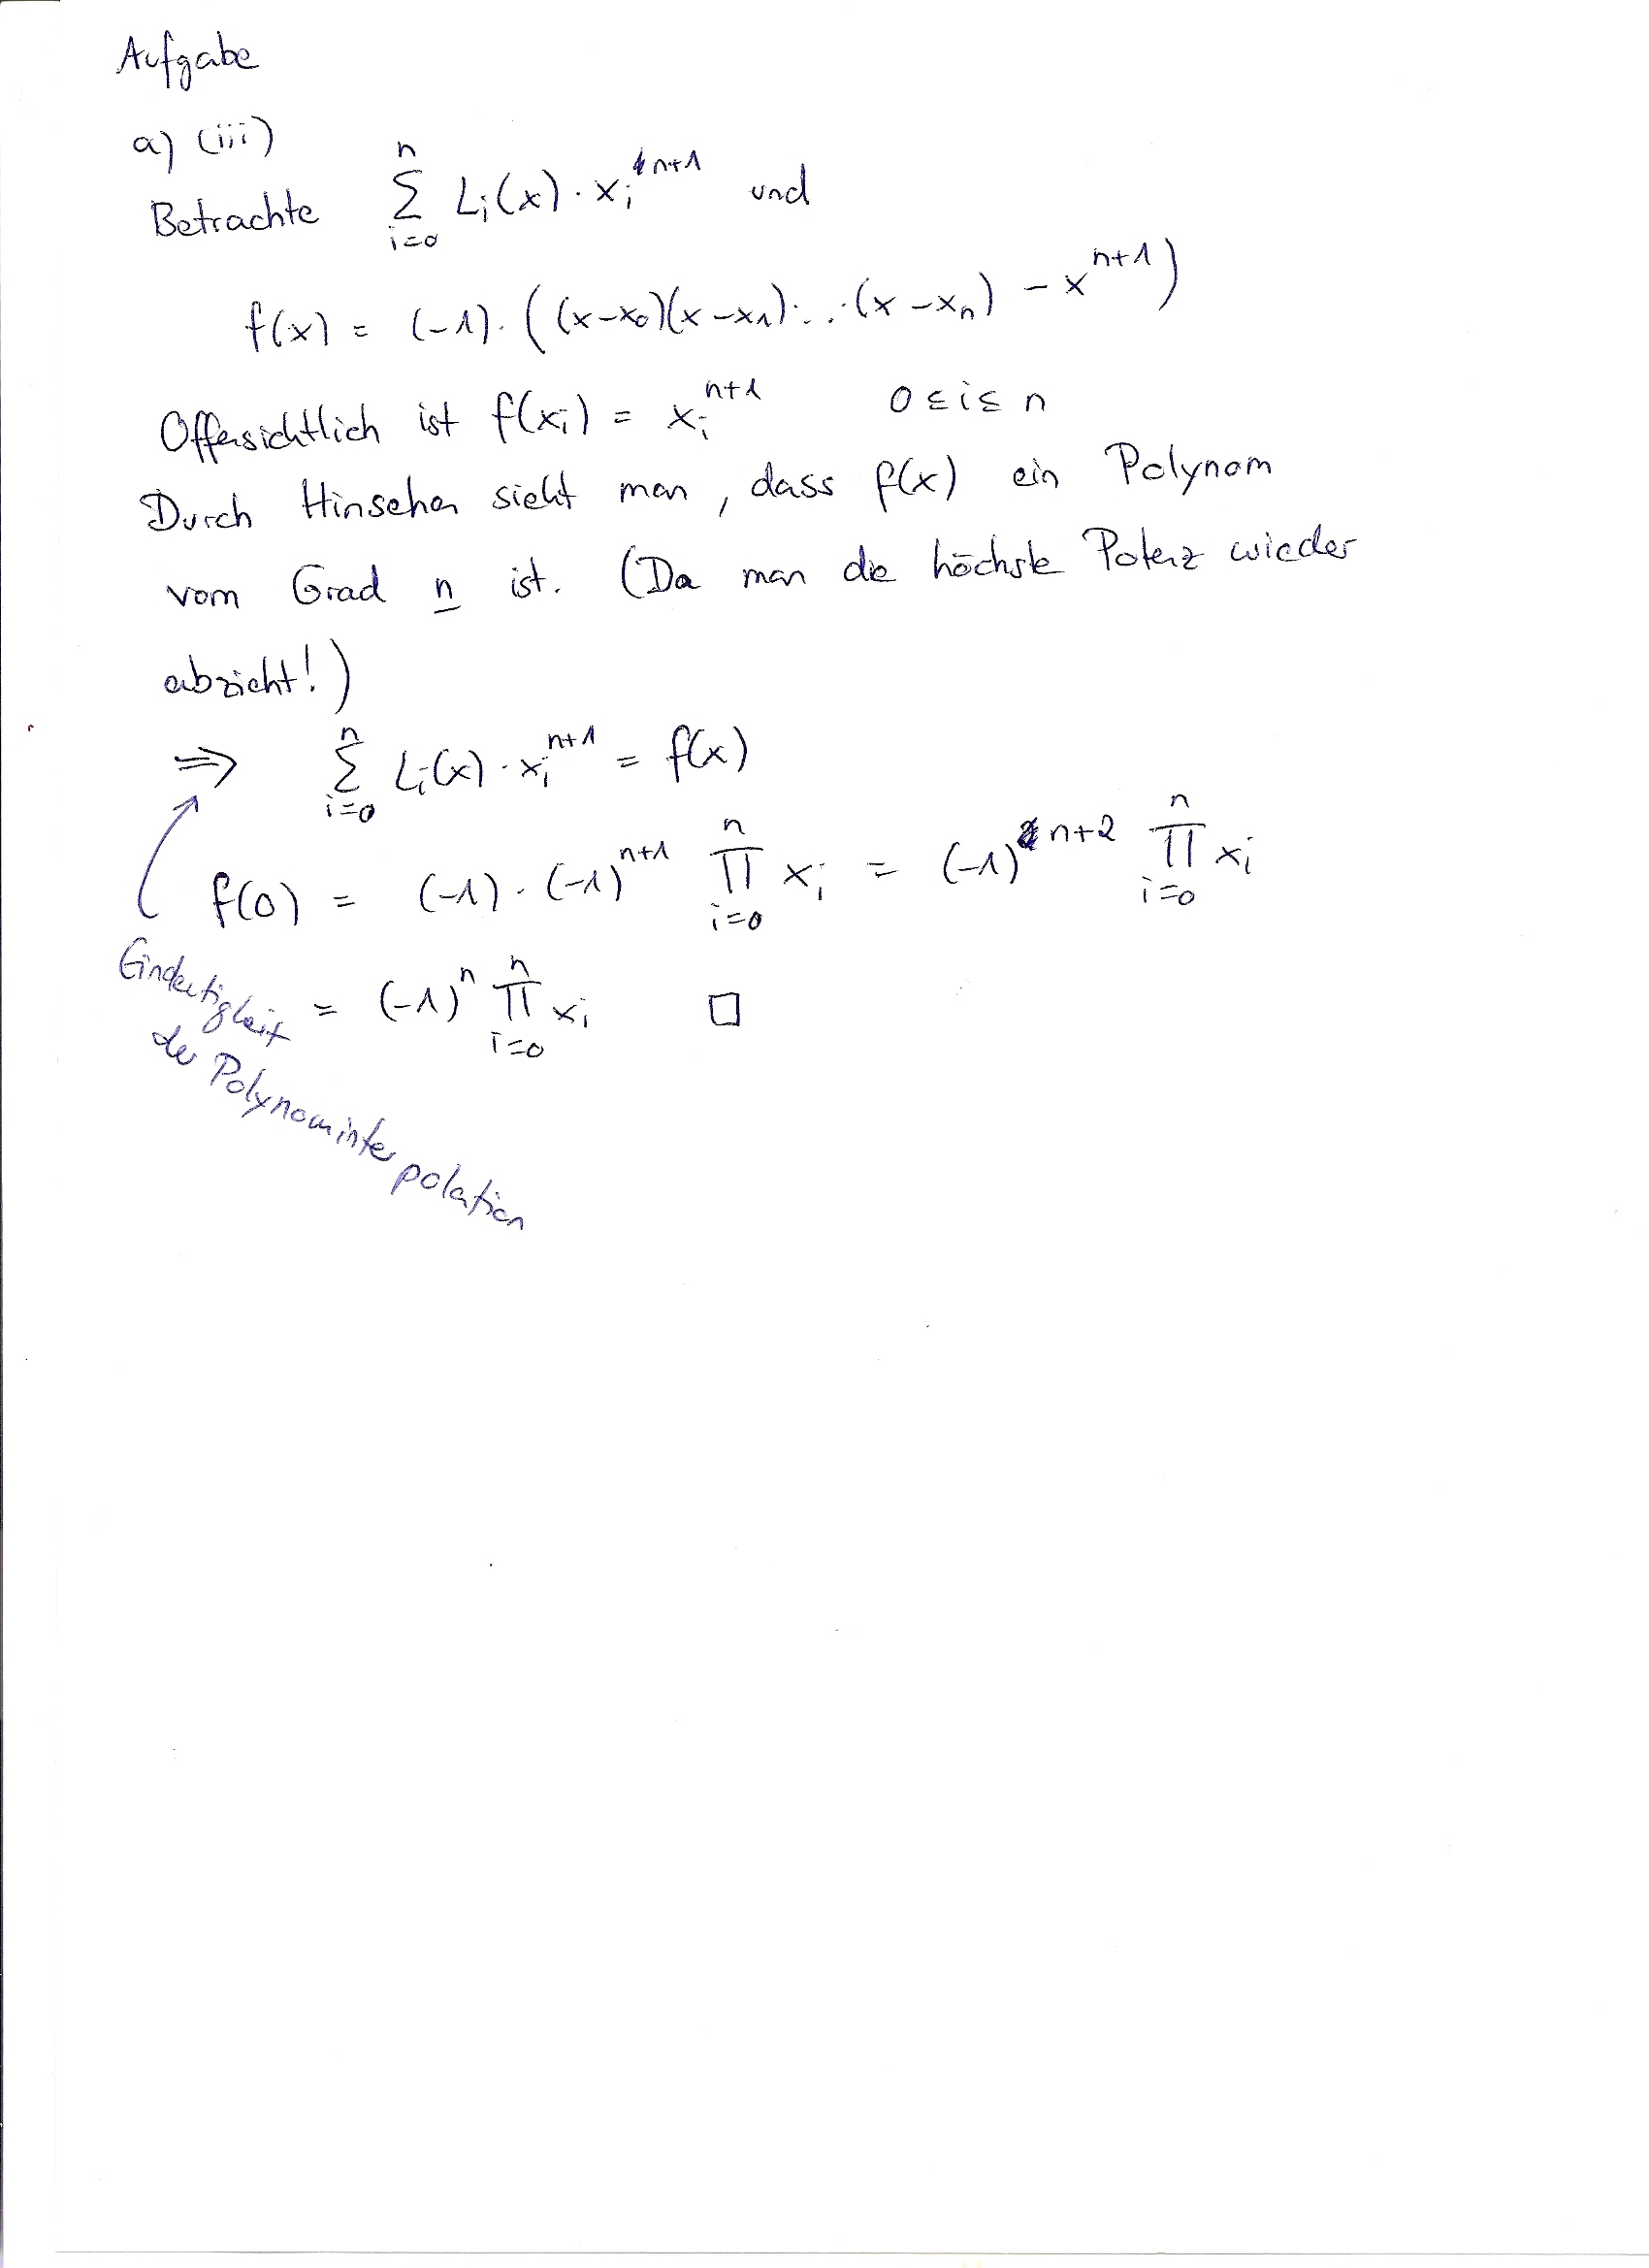 Aufgabe
a) (iii)
Betrachte $\sum_{i=0}^{n} L_i(x) \cdot x_i^{n+1}$ und
$f(x) = (-1) \cdot \left( (x-x_0)(x-x_1) \cdot \ldots \cdot (x-x_n) - x^{n+1} \right)$
Offensichtlich ist $f(x_i) = x_i^{n+1}$ $0 \leq i \leq n$
Durch Hinsehen sieht man, dass f(x) ein Polynom
vom Grad n ist. (Da man die höchste Potenz wieder
abzieht!)
$\Rightarrow \sum_{i=0}^{n} L_i(x) \cdot x_i^{n+1} = f(x)$
$f(0) = (-1) \cdot (-1)^{n+1} \prod_{i=0}^{n} x_i = (-1)^{n+2} \prod_{i=0}^{n} x_i$
$= (-1)^n \prod_{i=0}^{n} x_i$ □
Eindeutigkeit
der Polynominterpolation